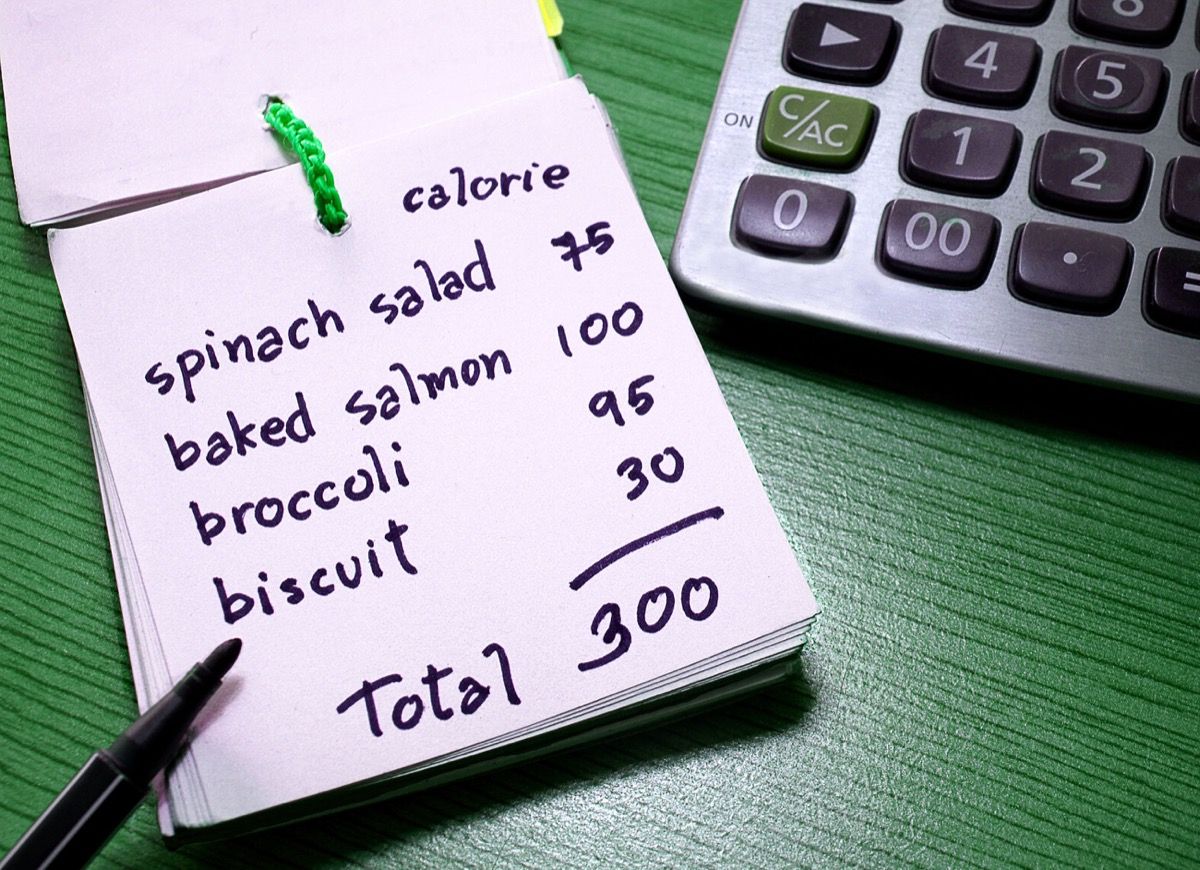 calorie
spinach salad 75
baked salmon 100
broccoli 95
biscuit 30
Total 300
8
4 5
ON C/AC 1 2
0 00 .
=